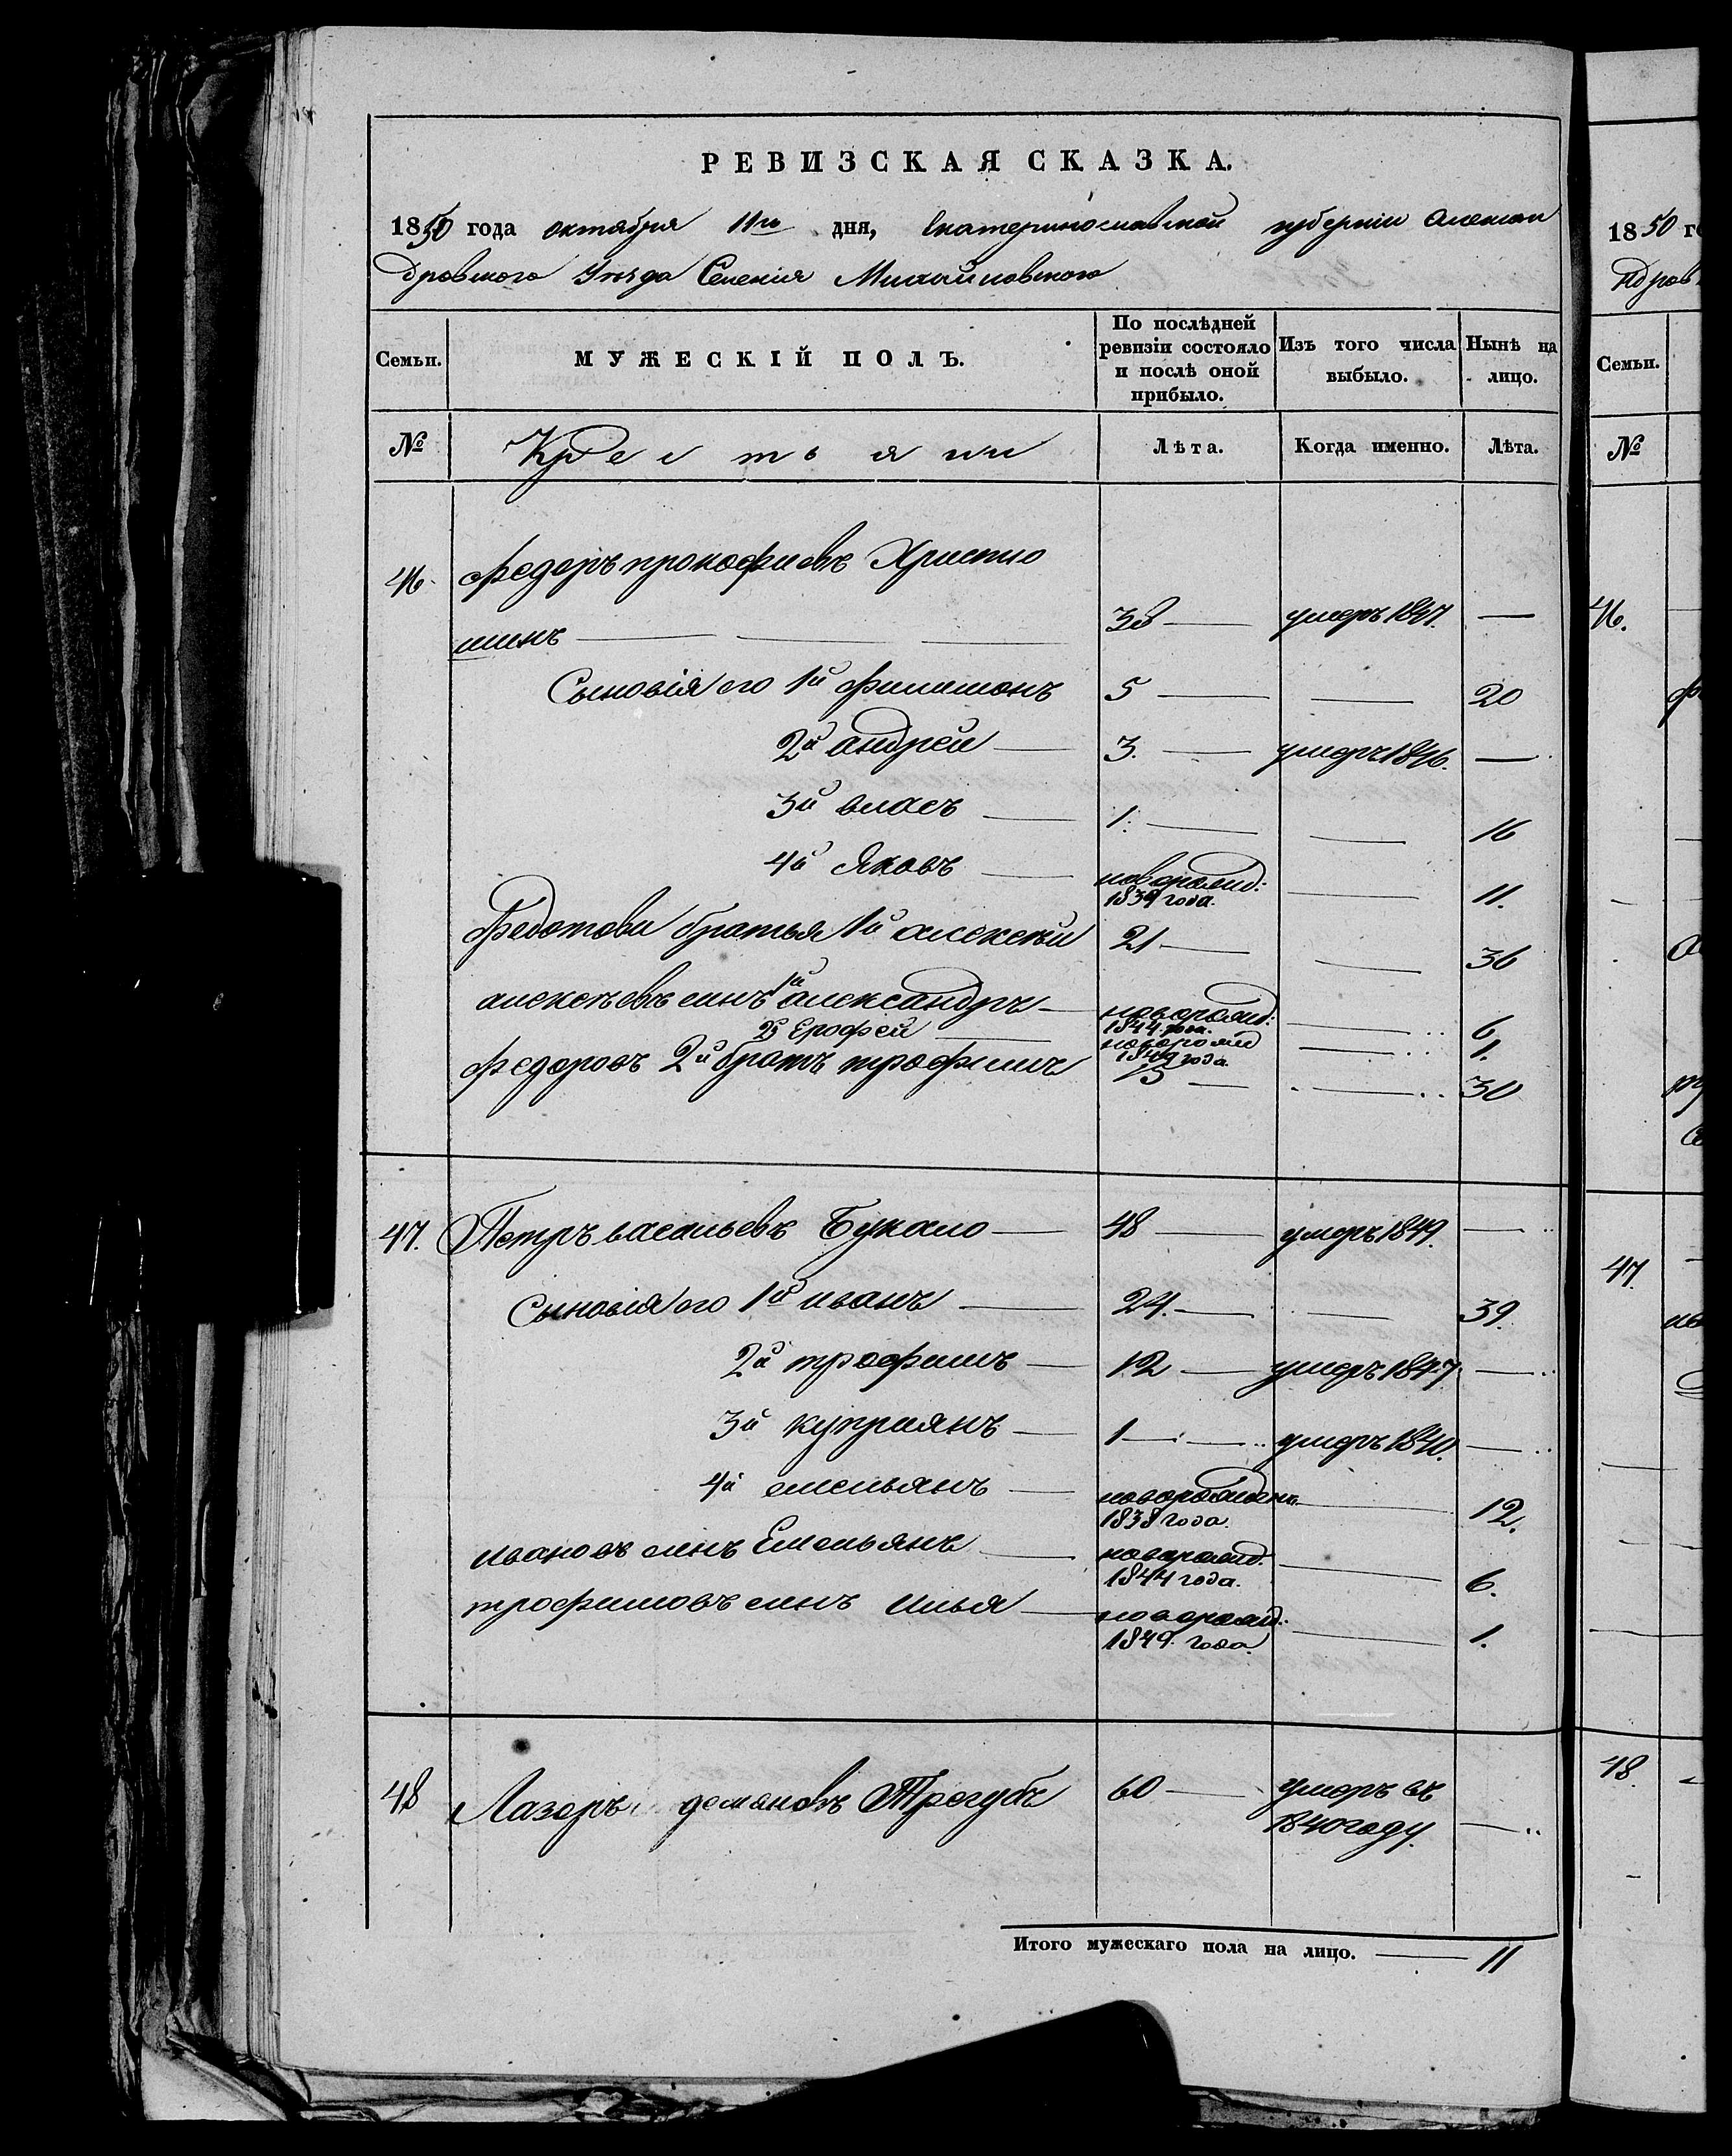 РЕВИЗСКАЯ СКАЗКА.
1850 года октября 11го дня, Екатеринославской губернии Алексан
дровского Уезда Селения Михайловского
Семьи. МУЖЕСКІЙ ПОЛЪ. По послѣдней ревизіи состояло и послѣ оной прибыло. Изъ того числа выбыло. Нынѣ на лицо.
№ Крестьяни Лѣта. Когда именно. Лѣта.
46. Федоръ прокофиевъ Христо
шинъ 38 умеръ 1847.
Сыновія его 1й Филимонъ 5 20
2й андреи 3. умеръ 1846.
3й власъ 1. 16
4й Яковъ новорожд: 1839 года. 11.
братья 1й алексѣи 21 36
алексѣевъ синъ 1й александръ новорожд: 1844 года. 6
2й Ерофеи новорожд 1849 года. 1.
Федоровъ 2й братъ трофимъ 15 30
47. Петръ васильевъ Букало 48 умеръ 1849.
Сыновія его 1й иванъ 24. 39.
2й трофимъ 12 умеръ 1847
3й куприянъ 1 умеръ 1840.
4й емельянъ новорожденъ 1838 года. 12.
ивановъ синъ Емельянъ новорожд. 1844 года. 6.
трофимовъ синъ илья новорожд: 1849 года 1.
48 Лазоръ демяновъ Трегубъ 60 умеръ въ
1840 году.
Итого мужескаго пола на лицо. 11
1850 го
ндров
Семьи.
№
46.
47
48.